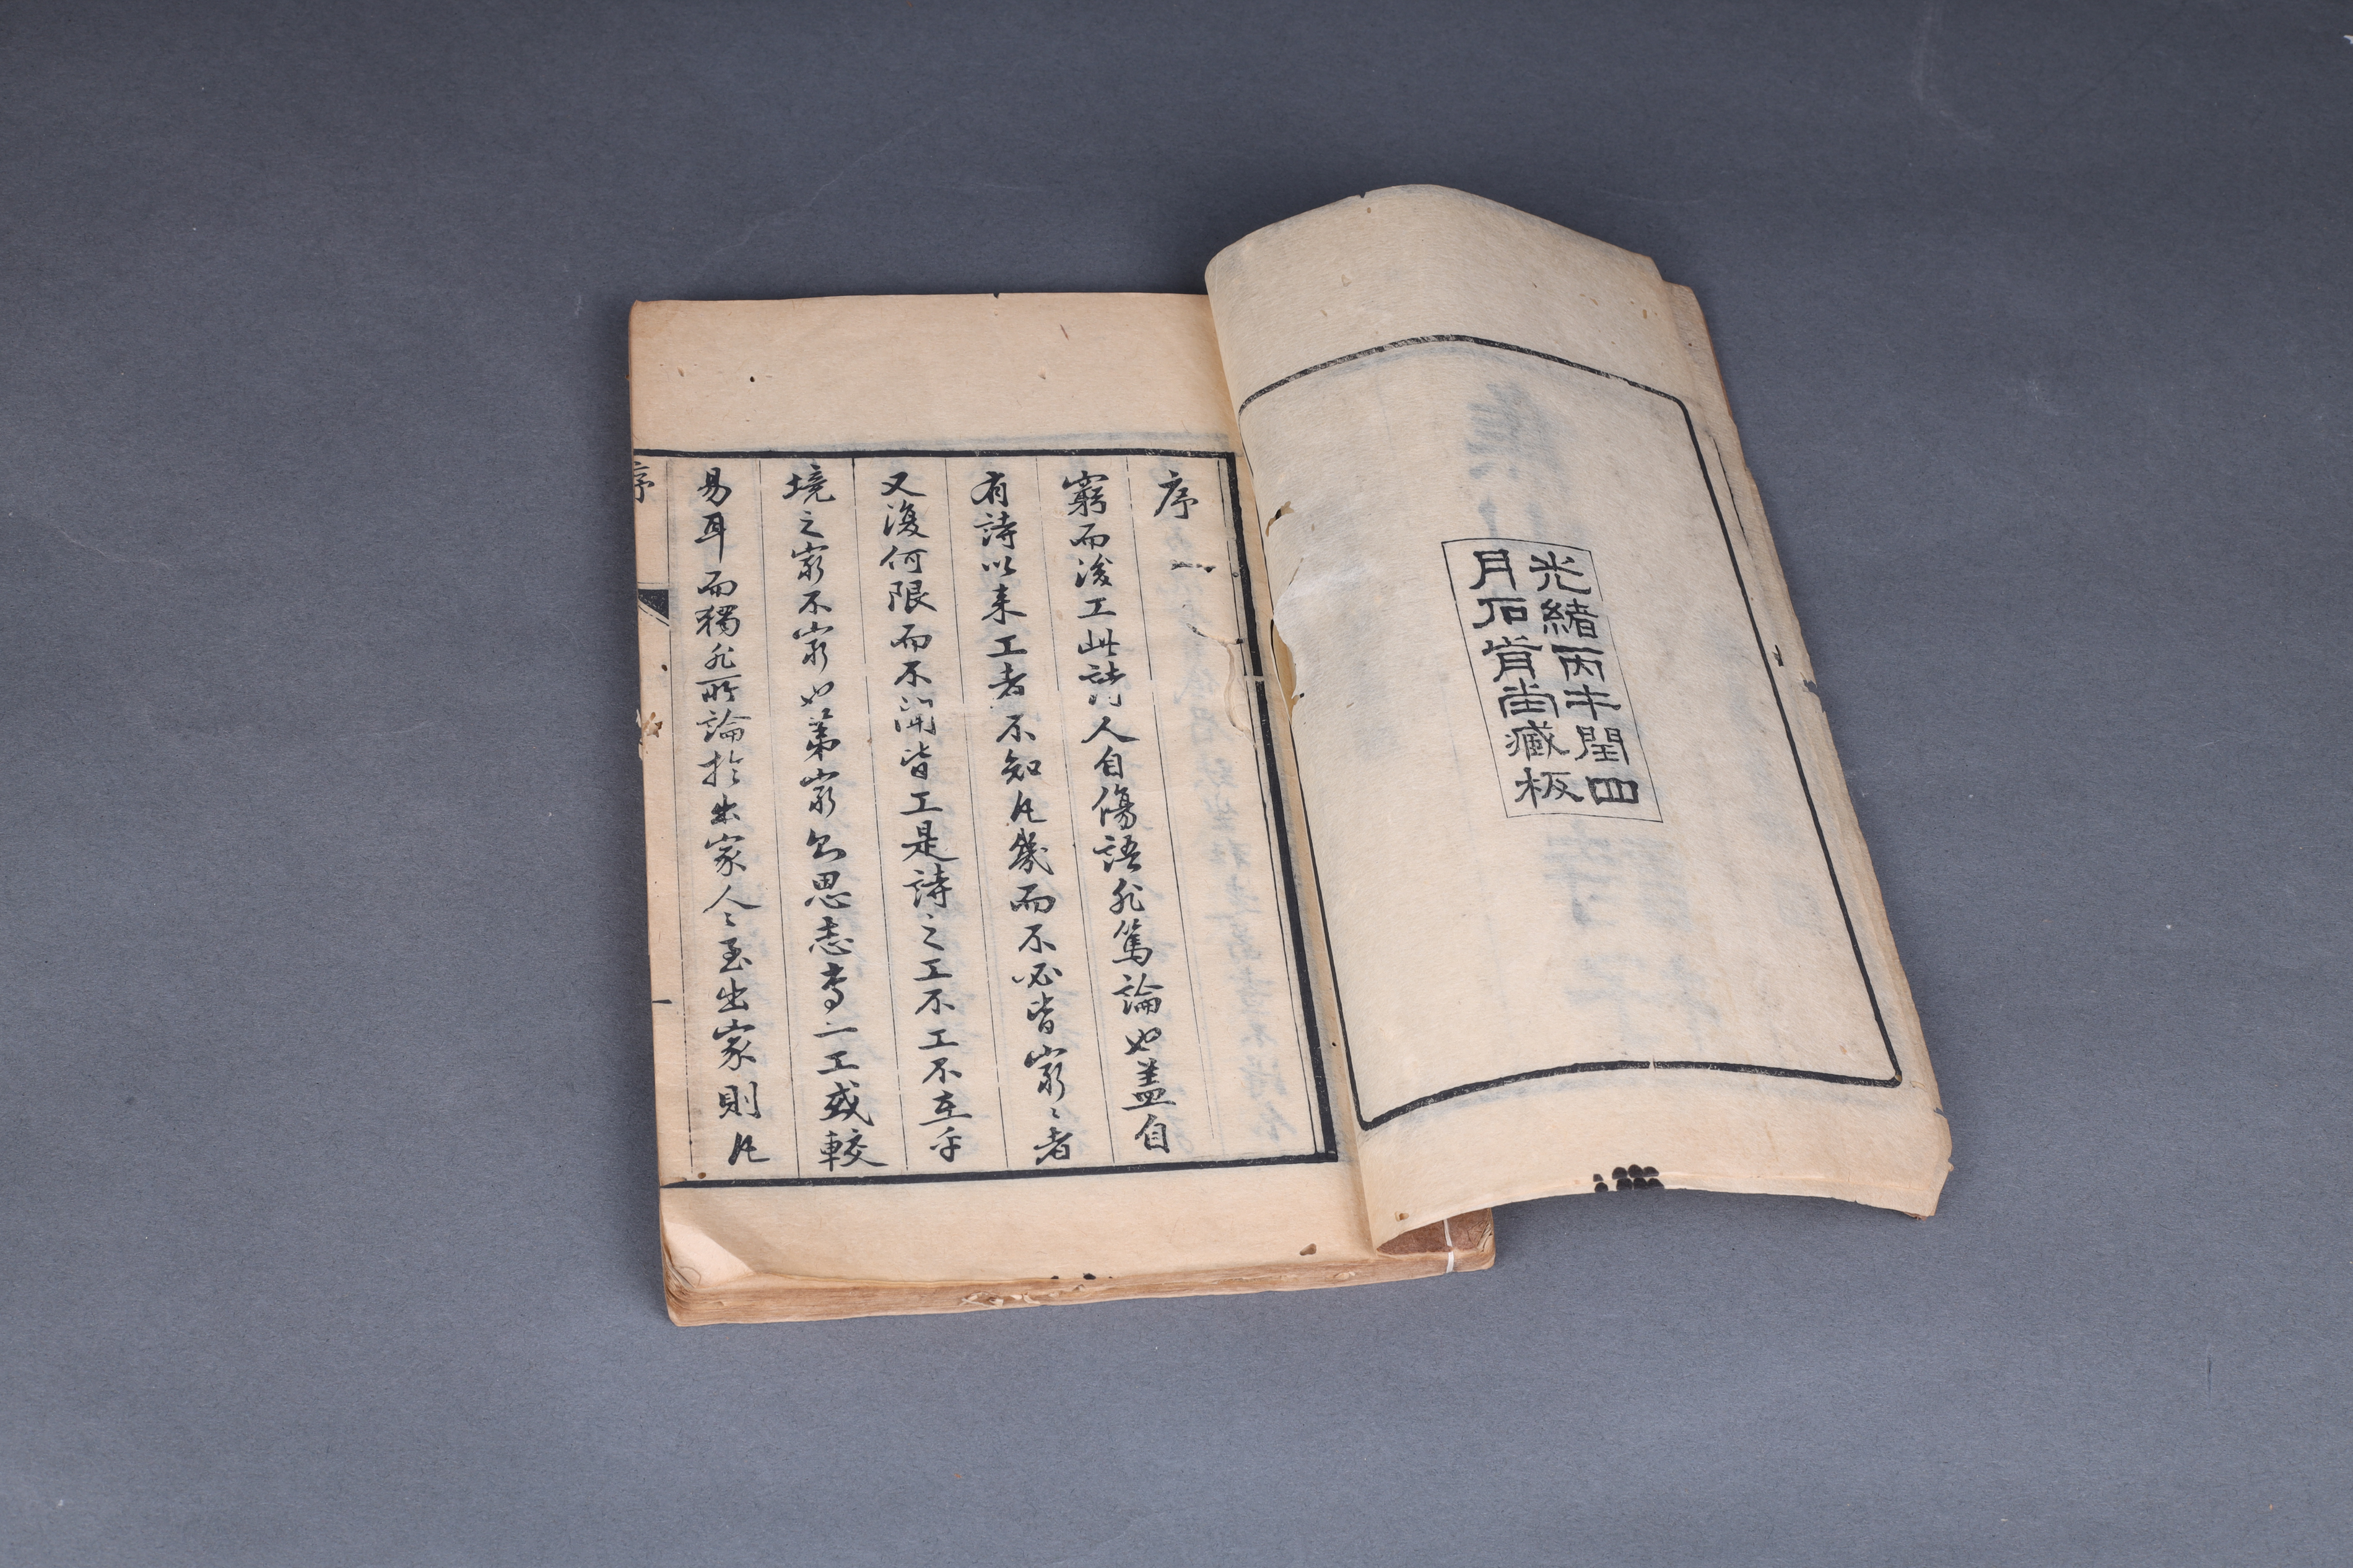 光緒丙午閏四
月石肯堂藏板
序
窮而後工此詩人自傷語非篤論也蓋自
有詩以来工者不知凡幾而不必皆窮〻者
又復何限而不聞皆工是詩之工不工不在乎
境之窮不窮也第窮則思志專而工或較
易耳而獨非所論於出家人〻至出家則凡
序